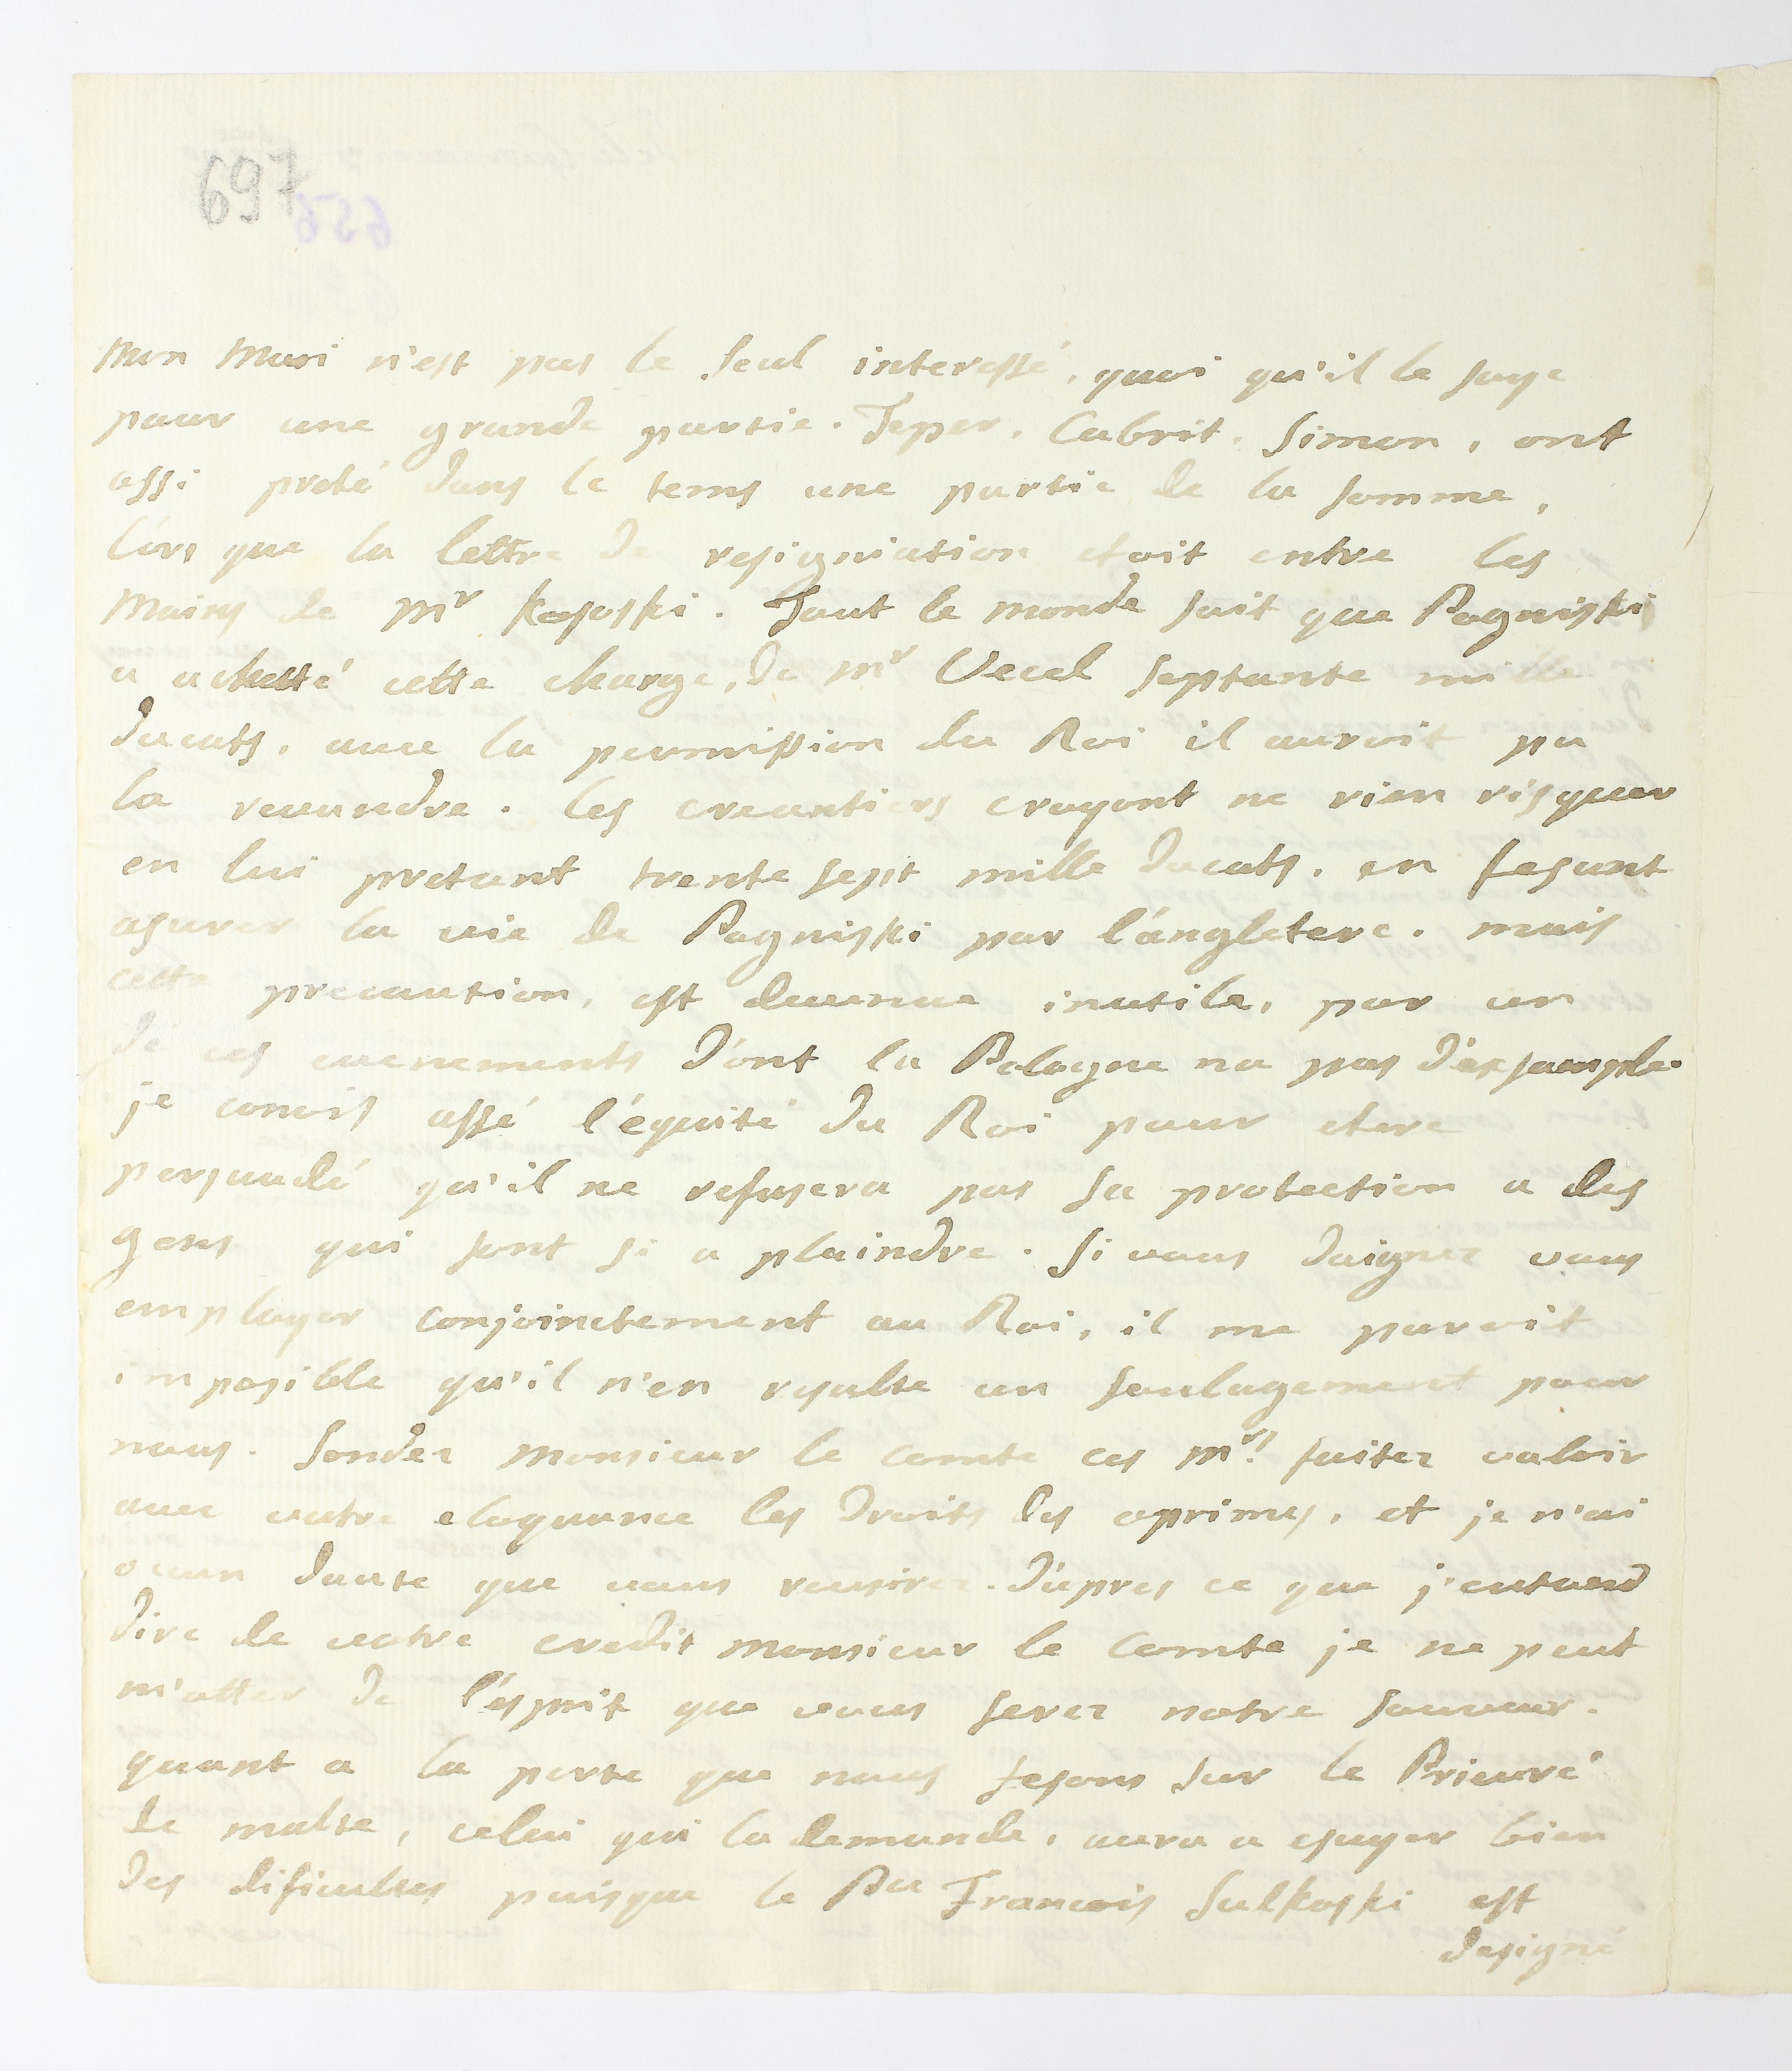 697
656
Mon Mari n'est pas le seul interessé, quoi qu'il le soye
pour une grande partie. Teper, Cabrit, Simon, ont
assi preté dans le tems une partie de la somme,
l'ors que la lettre de resigniation etoit entre les
mains de Mr Kososki. Tout le monde sait que Pogniski
a achetté cette charge, de Mr Vecel septante mille
ducats, avec la permission du Roi il auroit pu
la revandre. les creantiers croyont ne rien risquer
en lui pretant trente sept mille ducats, en fesant
asurer la vie de Pogniski par l'angletere. mais
cette precaution, est devenue inutile, par un
de ces evenements d'ont la Pologne na pas d'exsample.
je conois assé l'équité du Roi pour etere
persuadé qu'il ne refusera pas sa protection a des
gens qui sont si a plaindre. Si vous daignez vous
employer conjoinctement au Roi, il me paroit
imposible qu'il n'en resulte un soulagement pour
nous. Sondez Monsieur le comte ces Mrs. faitez valoir
avec votre eloquance les droits des oprimes, et je n'ai
ocun doute que vous reusirez. D'apres ce que j'entand
dire de votre credit Monsieur le Comte je ne peut
m'otter de l'esprit que vous serez notre sauveur.
quant a la perte que nous fesons sur le Prieuré
de malte, celui qui la demande, aura a esuyer bien
des dificultes puisque le Pce Francois Sulkoski est
designé